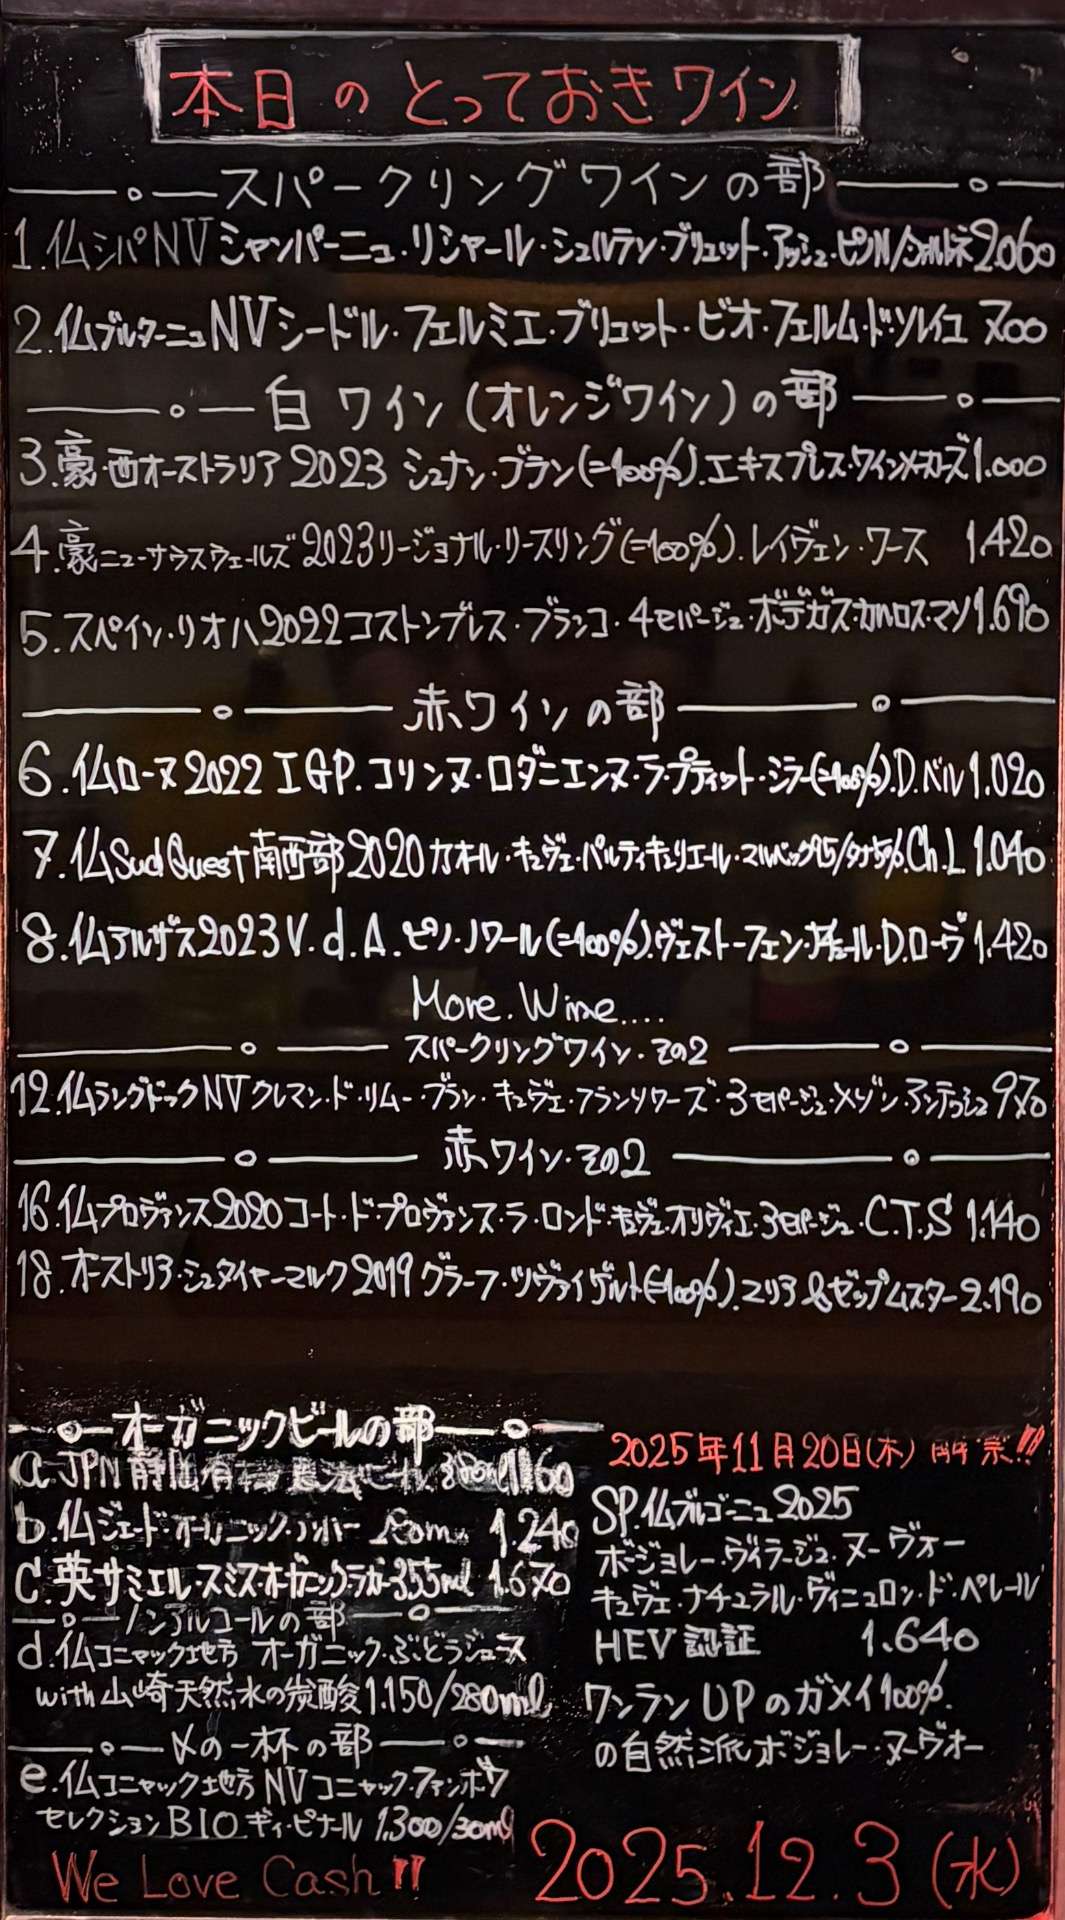 本日のとっておきワイン
スパークリングワインの部
1.仏シパNVシャンパーニュ・リシャール・シュルラン・ブリュット・アッシュ・ピノN/シャルドネ2.060
2.仏ブルターニュNVシードル・フェルミエ・ブリュット・ビオ・フェルム・ド・ソレイユ 700
白ワイン(オレンジワイン)の部
3.豪・西オーストラリア2023 シュナン・ブラン(=100%).エキスプレス・ワインメーカーズ1.000
4.豪ニューサウスウェールズ2023リージョナル・リースリング(=100%).レイヴェン・ワース 1.420
5.スペイン・リオハ2022コストンブレス・ブランコ・4セパージュ・ボデガス・カルロス・マソ1.690
赤ワインの部
6.仏ローヌ2022 IGP.コリンヌ・ロダニエンヌ・ラ・プティット・シラー(=100%).D.ベル1.020
7.仏Sud Ouest南西部2020カオール・キュヴェ・パルティキュリエール・マルベック95/タナ5%.Ch.L 1.040
8.仏アルザス2023 V.d.A.ピノ・ノワール(=100%).ヴェストーフェン・D.ローヴ1.420
More.Wine....
スパークリングワイン・その2
12.仏ラングドックNVクレマン・ド・リムー・ブラン・キュヴェ・フランソワーズ・3セパージュ・メゾン・アンテッシュ970
赤ワイン・その2
16.仏プロヴァンス2020コート・ド・プロヴァンス・ラ・ロンド・キュヴェ・オリヴィエ・3セパージュ・C.T.S 1.140
18.オーストリア・シュタイヤーマルク2019グラーフ・ツヴァイゲルト(=100%).マリア&ゼップムスター2.190
オーガニックビールの部
a.JPN 有 1160
b.仏ジェード・オーガニック・アンバー 1.240
c.英サミエル・スミス・オーガニック・ラガー355ml 1.670
ノンアルコールの部
d.仏コニャック地方 オーガニック・ぶどうジュース
with山崎天然水の炭酸1.150/280ml
〆の一杯の部
e.仏コニャック地方NVコニャック・ファンボワ
セレクションBIOギィ・ピナール 1.300/30ml
We Love Cash!!
2025年11月20日(木)解禁!!
SP.仏ブルゴーニュ2025
ボージョレー・ヴィラージュ・ヌーヴォー
キュヴェ・ナチュラル・ヴィニュロン・ド・ペレール
HEV認証 1.640
ワンランUPのガメイ100%.
の自然派ボジョレー・ヌーヴォー
2025.12.3(水)